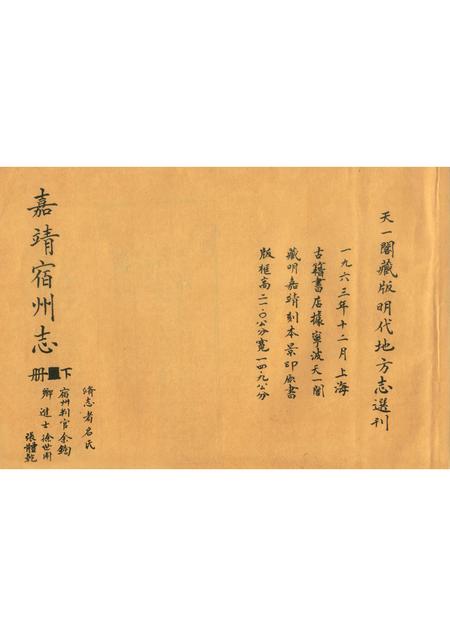 天一閣藏版明代地方志選刊
一九六三年十二月上海
古籍書店據寧波天一閣
藏明嘉靖刻本景印原書
版框高二一·〇公分寬一四·九公分
脩志者名氏
宿州判官余鈞
鄉進士徐世用
張體乾
嘉靖宿州志
下
册